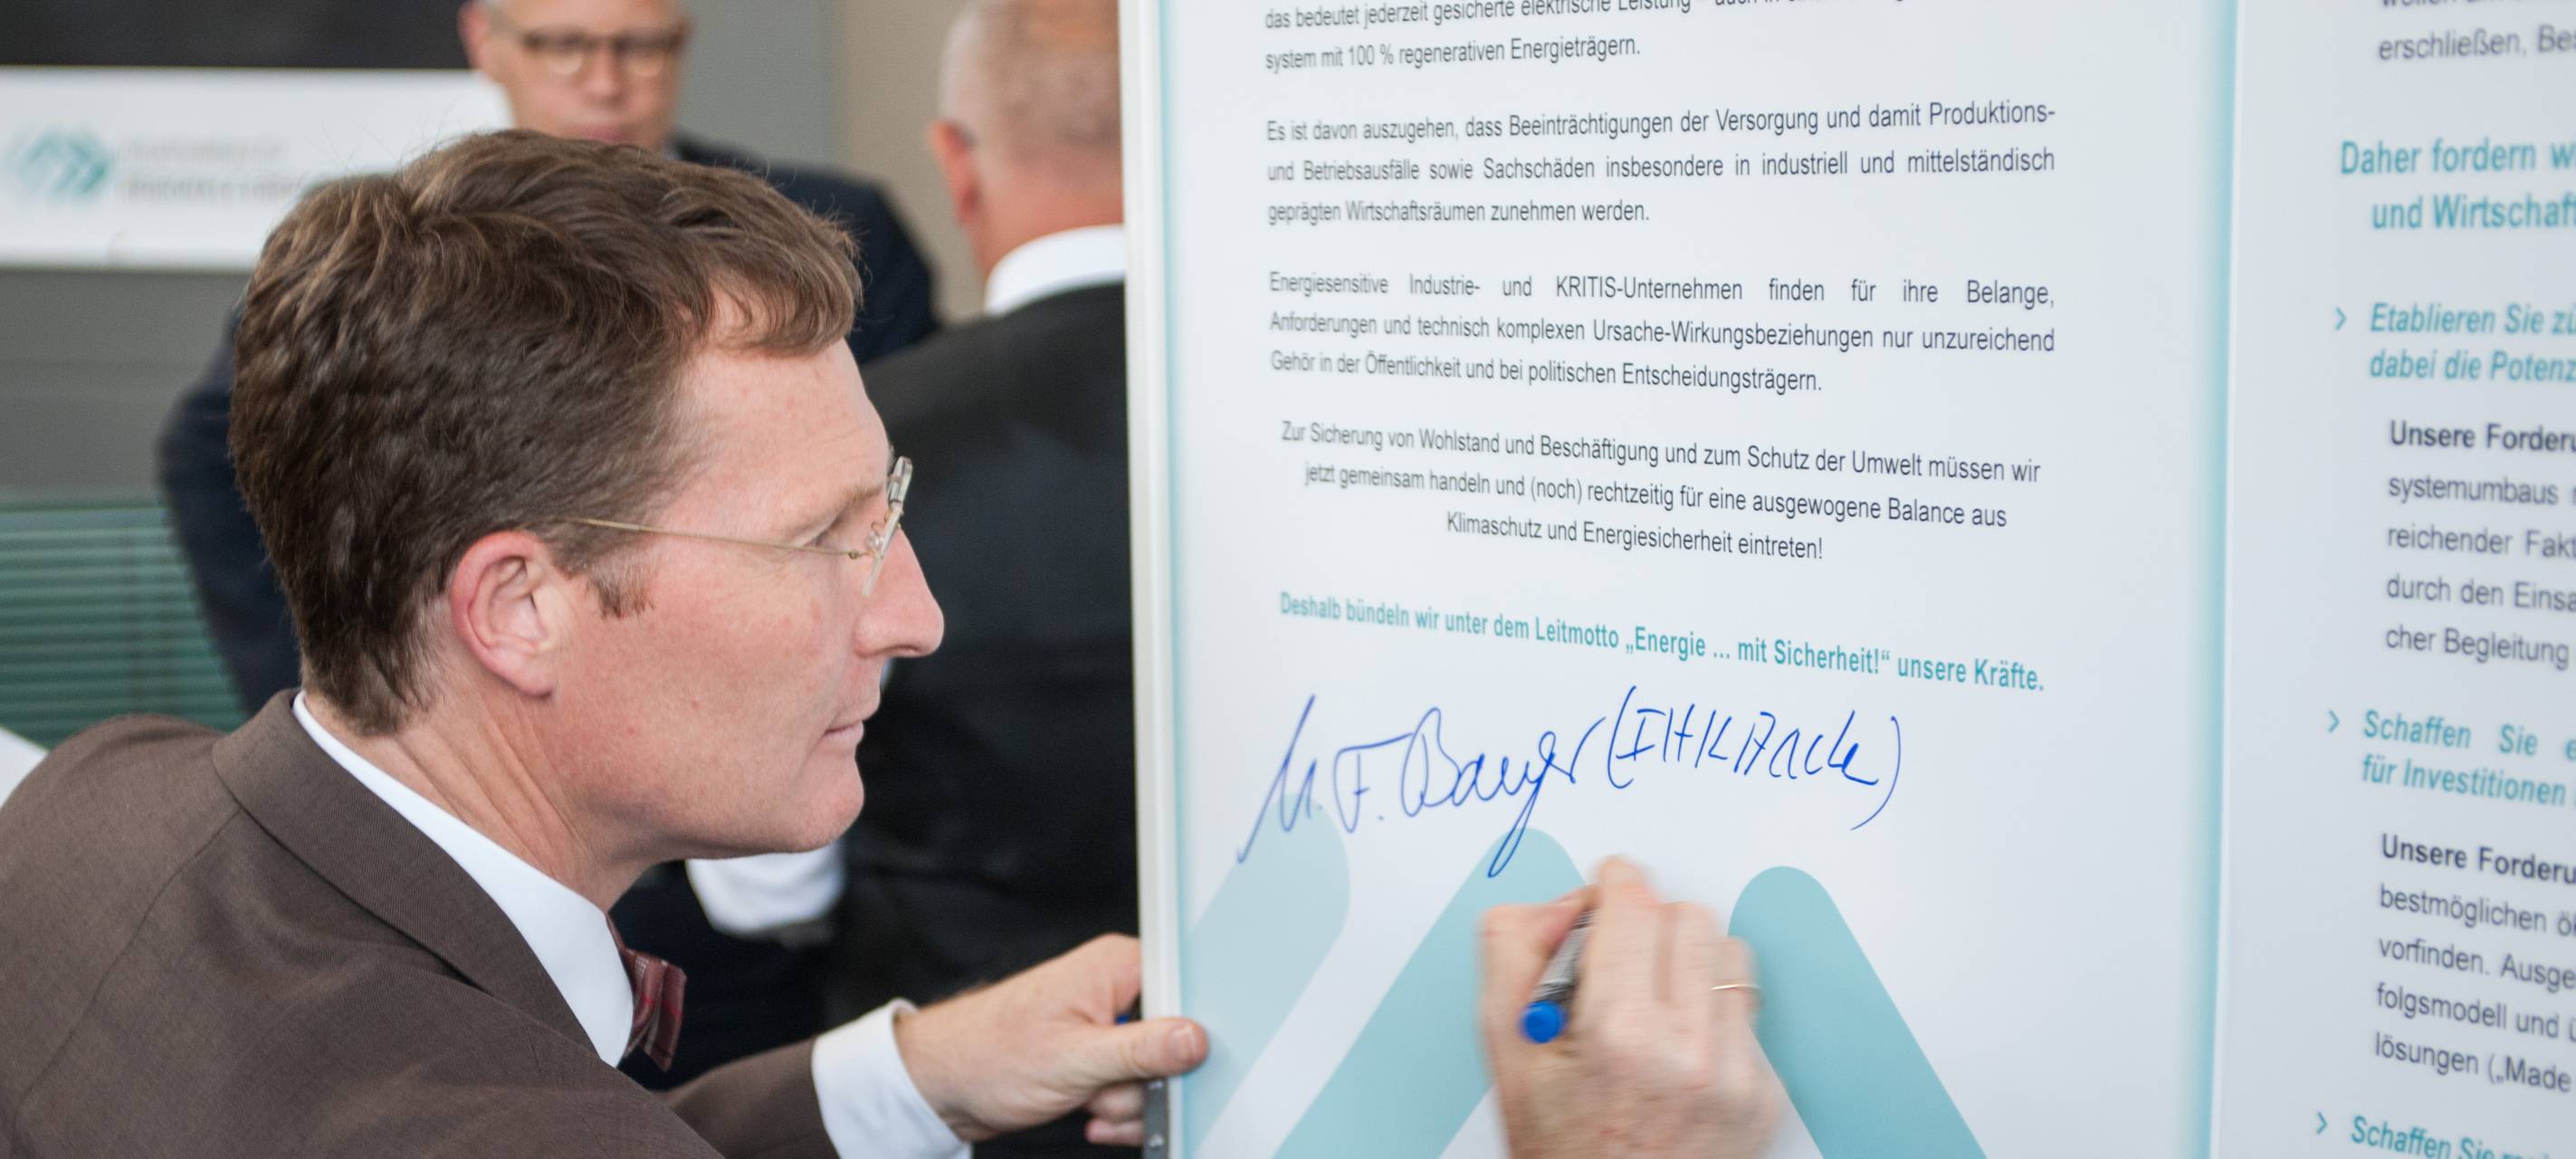 das bedeutet jederzeit gesicherte elektrische Leistung – auch in
system mit 100 % regenerativen Energieträgern.
Es ist davon auszugehen, dass Beeinträchtigungen der Versorgung und damit Produktions-
und Betriebsausfälle sowie Sachschäden insbesondere in industriell und mittelständisch
geprägten Wirtschaftsräumen zunehmen werden.
Energiesensitive Industrie- und KRITIS-Unternehmen finden für ihre Belange,
Anforderungen und technisch komplexen Ursache-Wirkungsbeziehungen nur unzureichend
Gehör in der Öffentlichkeit und bei politischen Entscheidungsträgern.
Zur Sicherung von Wohlstand und Beschäftigung und zum Schutz der Umwelt müssen wir
jetzt gemeinsam handeln und (noch) rechtzeitig für eine ausgewogene Balance aus
Klimaschutz und Energiesicherheit eintreten!
Deshalb bündeln wir unter dem Leitmotto „Energie ... mit Sicherheit!“ unsere Kräfte.
F. (IHK
erschließen, Be
Daher fordern w
und Wirtschaf
> Etablieren Sie zu
dabei die Potenz
Unsere Forderu
systemumbaus
reichender Fakt
durch den Einsa
cher Begleitung
> Schaffen Sie e
für Investitionen
Unsere Forderu
bestmöglichen ö
vorfinden. Ausge
folgsmodell und ü
lösungen („Made
> Schaffen Sie